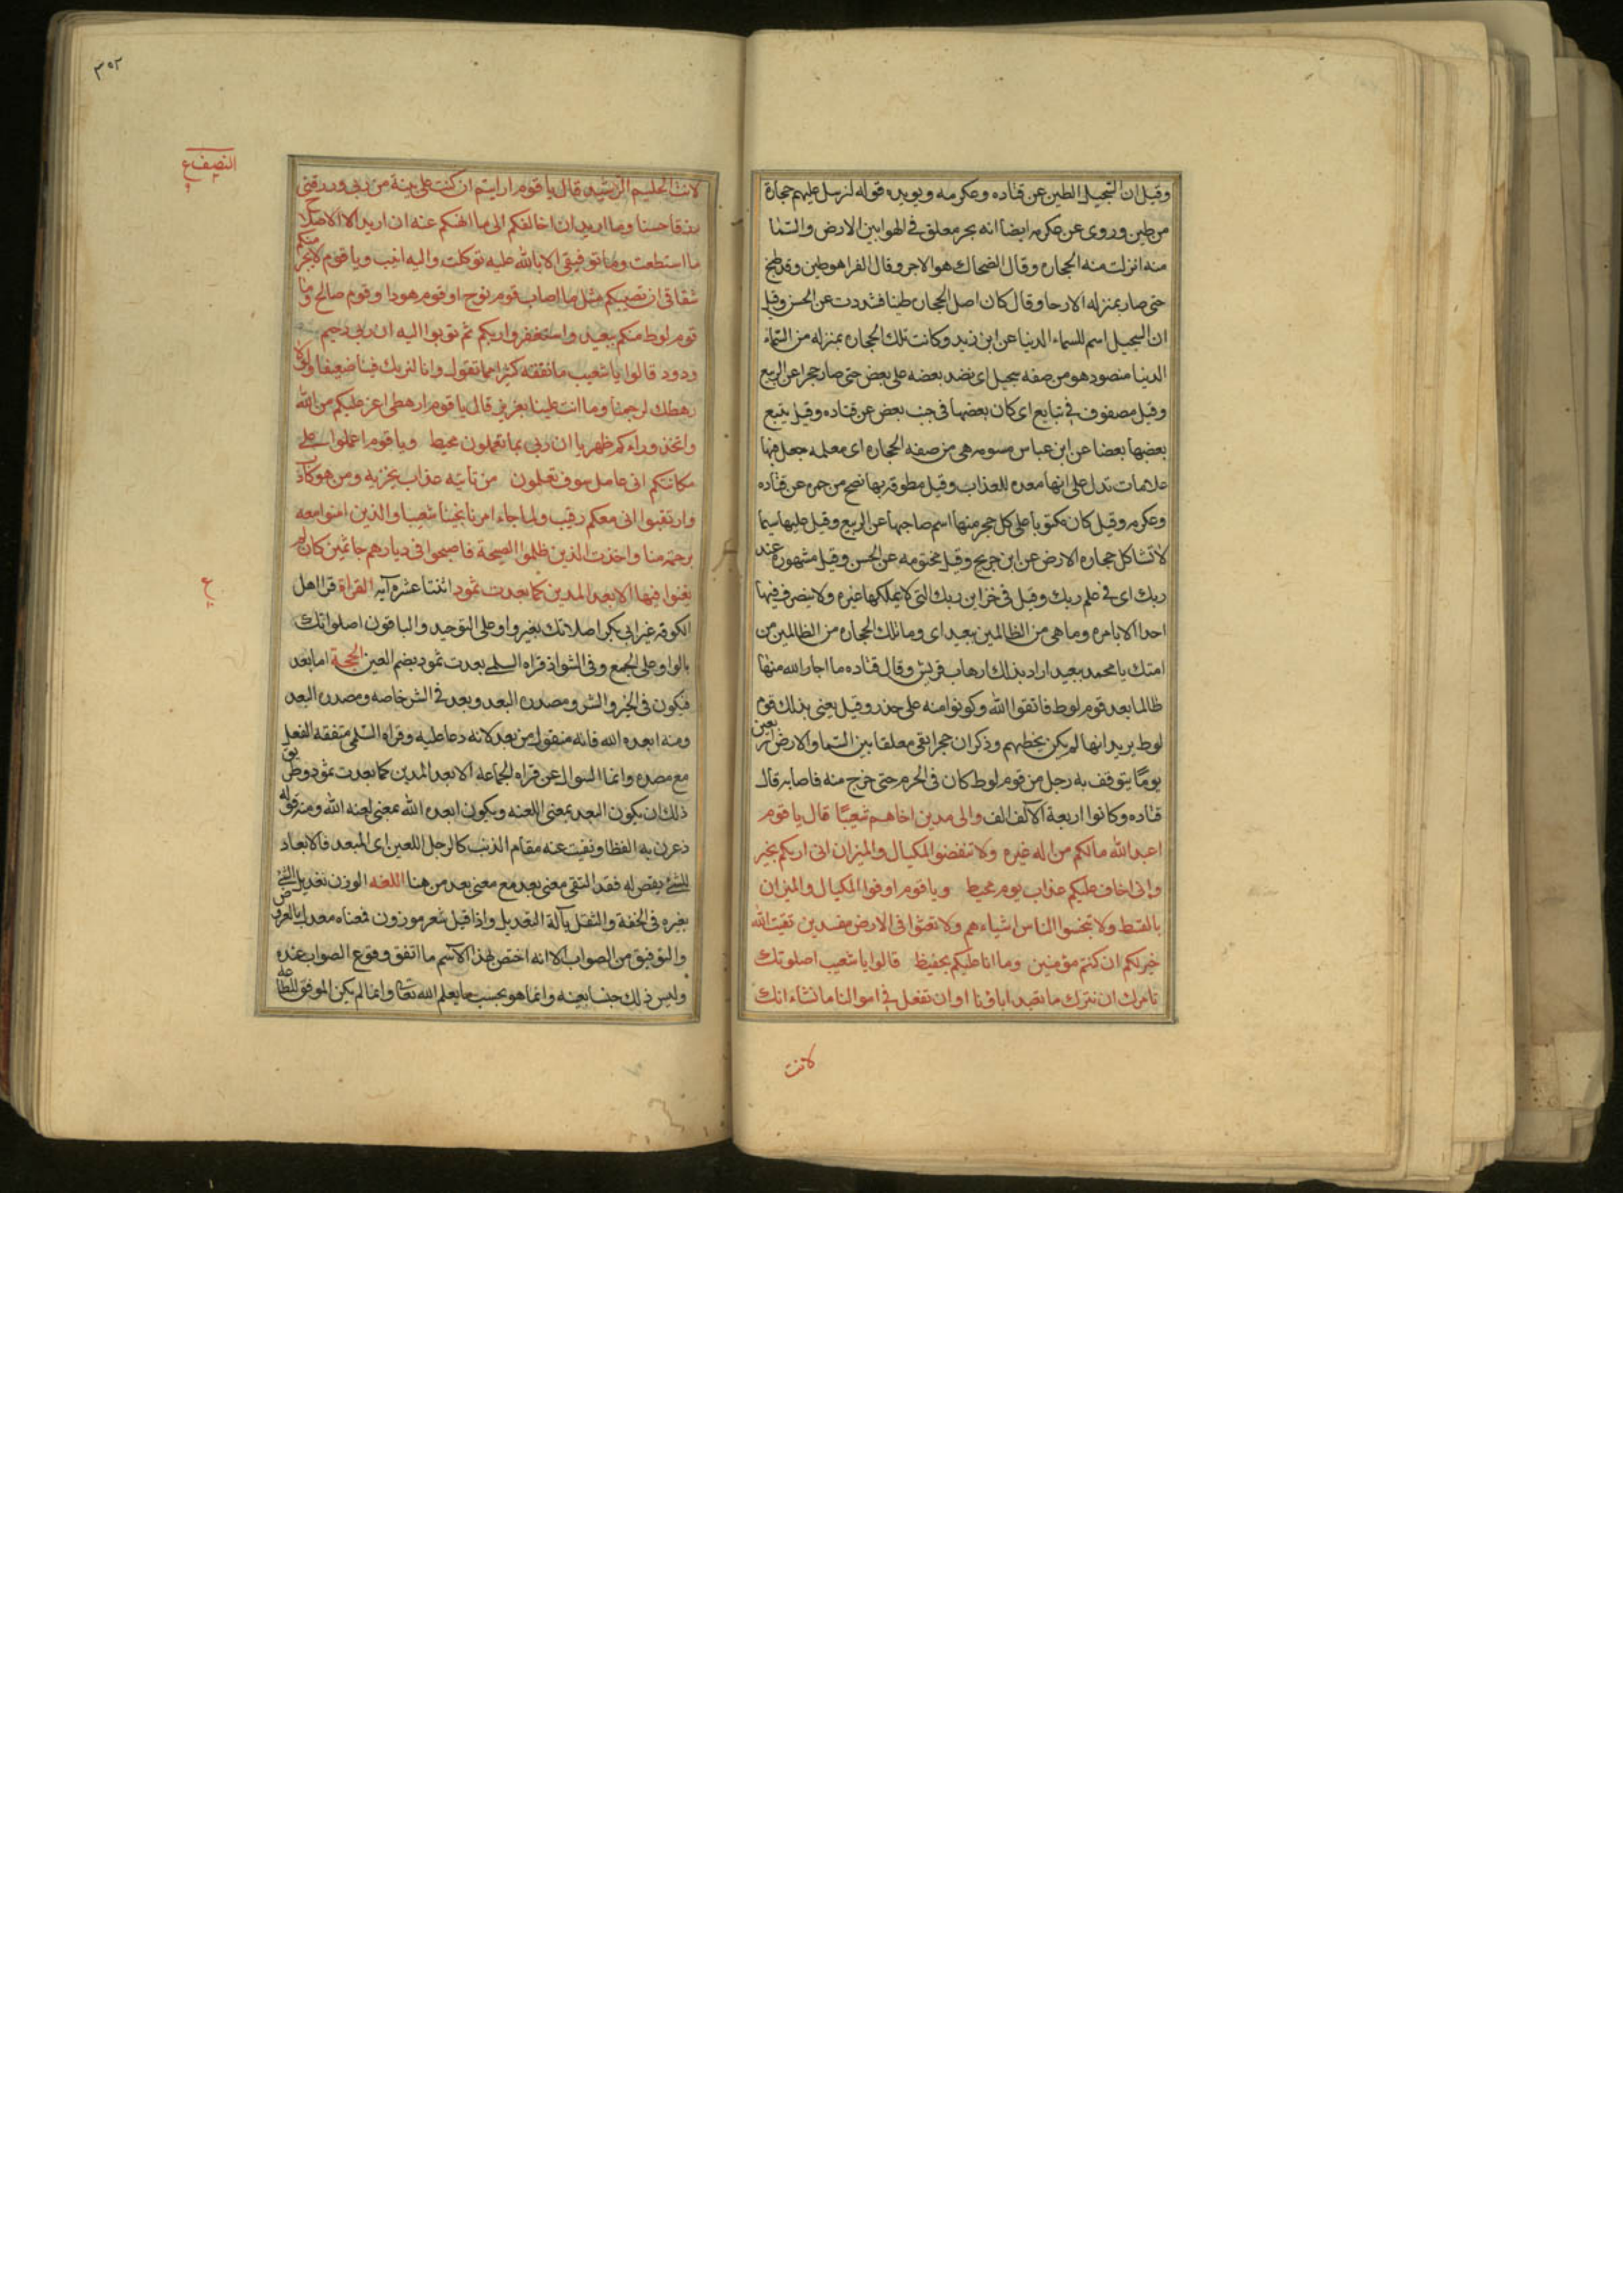 وقيل ان السجيل الطين عن قتاده وعكرمه ويويده قوله لنرسل عليهم حجارة
من طين وروى عن عكرمه ايضا انه بحر معلق في الهوا بين الارض والسما
منه انزلت منه الحجاره وقال الضحاك هو الاجر وقال الفرا هو طين وقد طبخ
حتى صار بمنزله الارحا وقال كان اصل الحجاره طينا فشددت عن الحسن وقيل
ان السجيل اسم للسماء الدنيا عن ابن زيد وكانت تلك الحجاره بمنزله من السماء
الدنيا منضود هو من صفه سجيل اى نضد بعضه على بعض حتى صار حجرا عن الربيع
وقيل مصفوف في تتابع اى كان بعضها في جنب بعض عن قتاده وقيل يتبع
بعضها بعضا عن ابن عباس مسومه هى من صفه الحجاره اى معلمه جعل فيها
علامات تدل على انها معده للعذاب وقيل مطوقه بها نضح من حمره عن قتاده
وعكرمه وقيل كان مكتوبا على كل حجر منها اسم صاحبها عن الربيع وقيل عليها سيما
لا تشاكل حجاره الارض عن ابن جريج وقيل مختومه عن الحسن وقيل مشهوره عند
ربك اى في علم ربك وقيل في خزاين ربك التى لا يملكها غيره ولا يتصرف فيها
احد الا بامره وما هى من الظالمين ببعيد اى وما تلك الحجاره من الظالمين من
امتك يا محمد ببعيد اراد بذلك ارهاب قريش وقال قتاده ما اجار الله منها
ظالما بعد قوم لوط فاتقوا الله وكونوا منه على حذر وقيل يعنى بذلك قوم
لوط يريد انها لم يكن تخطيهم وذكر ان حجرا بقى معلقا بين السما والارض اربعين
يومًا يتوقف به رجل من قوم لوط كان في الحرم حتى خرج منه فاصابه قال
قتاده وكانوا اربعة الآلف الف والى مدين اخاهم شعيبًا قال يا قوم
اعبد الله مالكم من اله غيره ولا تنقصوا المكيال والميزان انى اريكم بخير
وانى اخاف عليكم عذاب يوم محيط ويا قوم اوفوا المكيال والميزان
بالقسط ولا تبخسوا الناس اشياءهم ولا تعثوا في الارض مفسدين بقيت الله
خير لكم ان كنتم مؤمنين وما انا عليكم بحفيظ قالوا يا شعيب اصلوتك
تامرك ان نترك ما يعبد اباؤنا او ان نفعل في اموالنا ما نشاء انك
لانت
٣٥٢
النصف ع
لانت الحليم الرشيد قال يا قوم ارايتم ان كنت على بينة من ربى ورزقنى
رزقا حسنا وما اريد ان اخالفكم الى ما انهكم عنه ان اريد الا الاصلاح
ما استطعت وما توفيقى الا بالله عليه توكلت واليه انيب ويا قوم لا يجرمنكم
شقاقى ان تصيبكم مثل ما اصاب قوم نوح او قوم هودا وقوم صالح وما
قوم لوط منكم ببعيد واستغفروا ربكم ثم توبوا اليه ان ربى رحيم
ودود قالوا يا شعيب ما نفقه كثيرا مما تقول وانا لنريك فينا ضعيفا ولولا
رهطك لرجمنا وما انت علينا بعزيز قال يا قوم ارهطى اعز عليكم من الله
واتخذ وراءكم ظهريا ان ربى بما تعملون محيط ويا قوم اعملوا على
مكانتكم انى عامل سوف تعلمون من ياتيه عذاب يخزيه ومن هو كاذب
وارتقبوا انى معكم رقيب ولما جاء امرنا نجينا شعيبا والذين امنوا معه
برحمة منا واخذت الذين ظلموا الصيحة فاصبحوا في ديارهم جاثمين كان لم
يغنوا فيها الا بعد المدين كما بعدت ثمود اثنتا عشره آيه القراة قرا اهل
الكوفه غير ابى بكر اصلاتك بغير واو على التوحيد والباقون اصلواتك
بالواو على الجمع وفى الشواذ قراه السلمى بعدت ثمود بضم العين الحجة اما بعد
فيكون في الخير والشر ومصدره البعد وبعد في الشر خاصه ومصدره البعد
ومنه ابعده الله فانه منقول من بعد لانه دعا عليه وقراه السلمى متفقه الفعل
مع مصدره وانما السوال عن قراه الجماعه الا بعد المدين كما بعدت ثمود وطريق
ذلك ان يكون البعد بمعنى اللعنه ويكون ابعده الله بمعنى لعنه الله ومنه قوله
ذعرت به القطا ونفيت عنه مقام الذئب كالرجل اللعين اى المبعد فالابعاد
للشئ نقص له فقد التقى معنى بعد مع معنى بعد من هنا اللغه الوزن تعديل الشئ
بغيره في الخفة والثقل بآلة التعديل واذا قيل شعر موزون فمعناه معدل بالعروض
والتوفيق من الصواب الا انه اختص لهذا الاسم ما اتفق وقوع الصواب عنده
وليس ذلك جنسا بعينه وانما هو بحسب ما يعلم الله تعالى وانما لم يكن الموفق للطاعه
ع